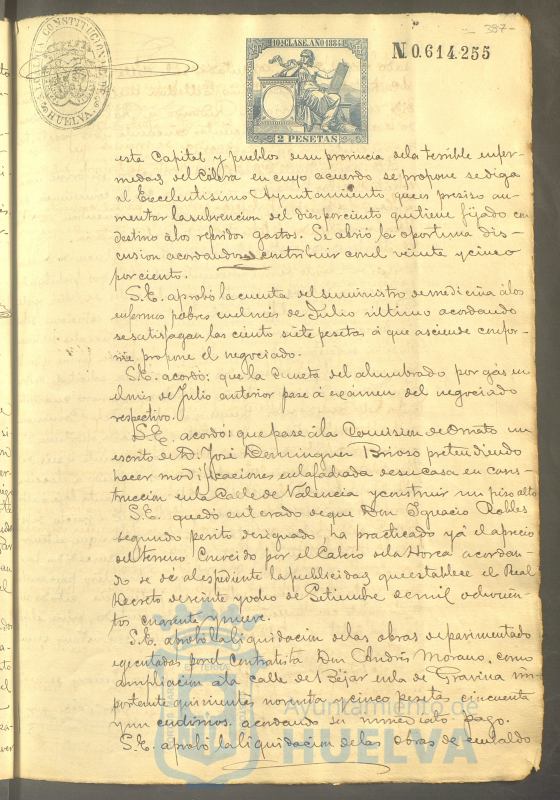 387-
ALCALDIA CONSTITUCIONAL DE HUELVA
10ª CLASE. AÑO 1884
2 PESETAS
N.0.614.255
esta Capital y pueblos de su provincia de la terrible enfer-
medad del Cólera en cuyo acuerdo se propone se diga
al Excelentisimo Ayuntamiento que es preciso au-
mentar la subvencion del diez por ciento que tiene fijado con
destino á los referidos gastos. Se abrió la oportuna dis-
cusion acordandose contribuir con el veinte y cinco
por ciento.
S.E. aprobó la cuenta del suministro de medicina á los
enfermos pobres en el mes de Julio último acordando
se satisfagan las ciento siete pesetas á que asciende confor-
me propone el negociado.
S.E. acordó: que la cuenta del alumbrado por gas en
el mes de Julio anterior pase á exámen del negociado
respectivo.
S.E. acordó: que pase á la Comision de Ornato un
escrito de D. José Dominguez Brioso pretendiendo
hacer modificaciones en la fachada de su casa en cons-
truccion en la Calle de Valencia y construir un piso alto
S.E. quedó enterado de que Don Ygnacio Robles
segundo perito designado, ha practicado yá el aprecio
del terreno conocido por el Cabezo de la Horca acordan-
do se dé al espediente la publicidad que establece el Real
Decreto de veinte y ocho de Setiembre de mil ochocien-
tos cuarenta y nueve.
S.E. aprobó la liquidacion de las obras de pavimentado
egecutadas por el contratista Don Andrés Morano, como
ampliacion á la calle del Béjar en la de Gravina im-
portante quinientas noventa y cinco pesetas cincuenta
y un centimos acordando su inmediato pago.
S.E. aprobó la liquidacion de las obras de
Ayuntamiento de
HUELVA